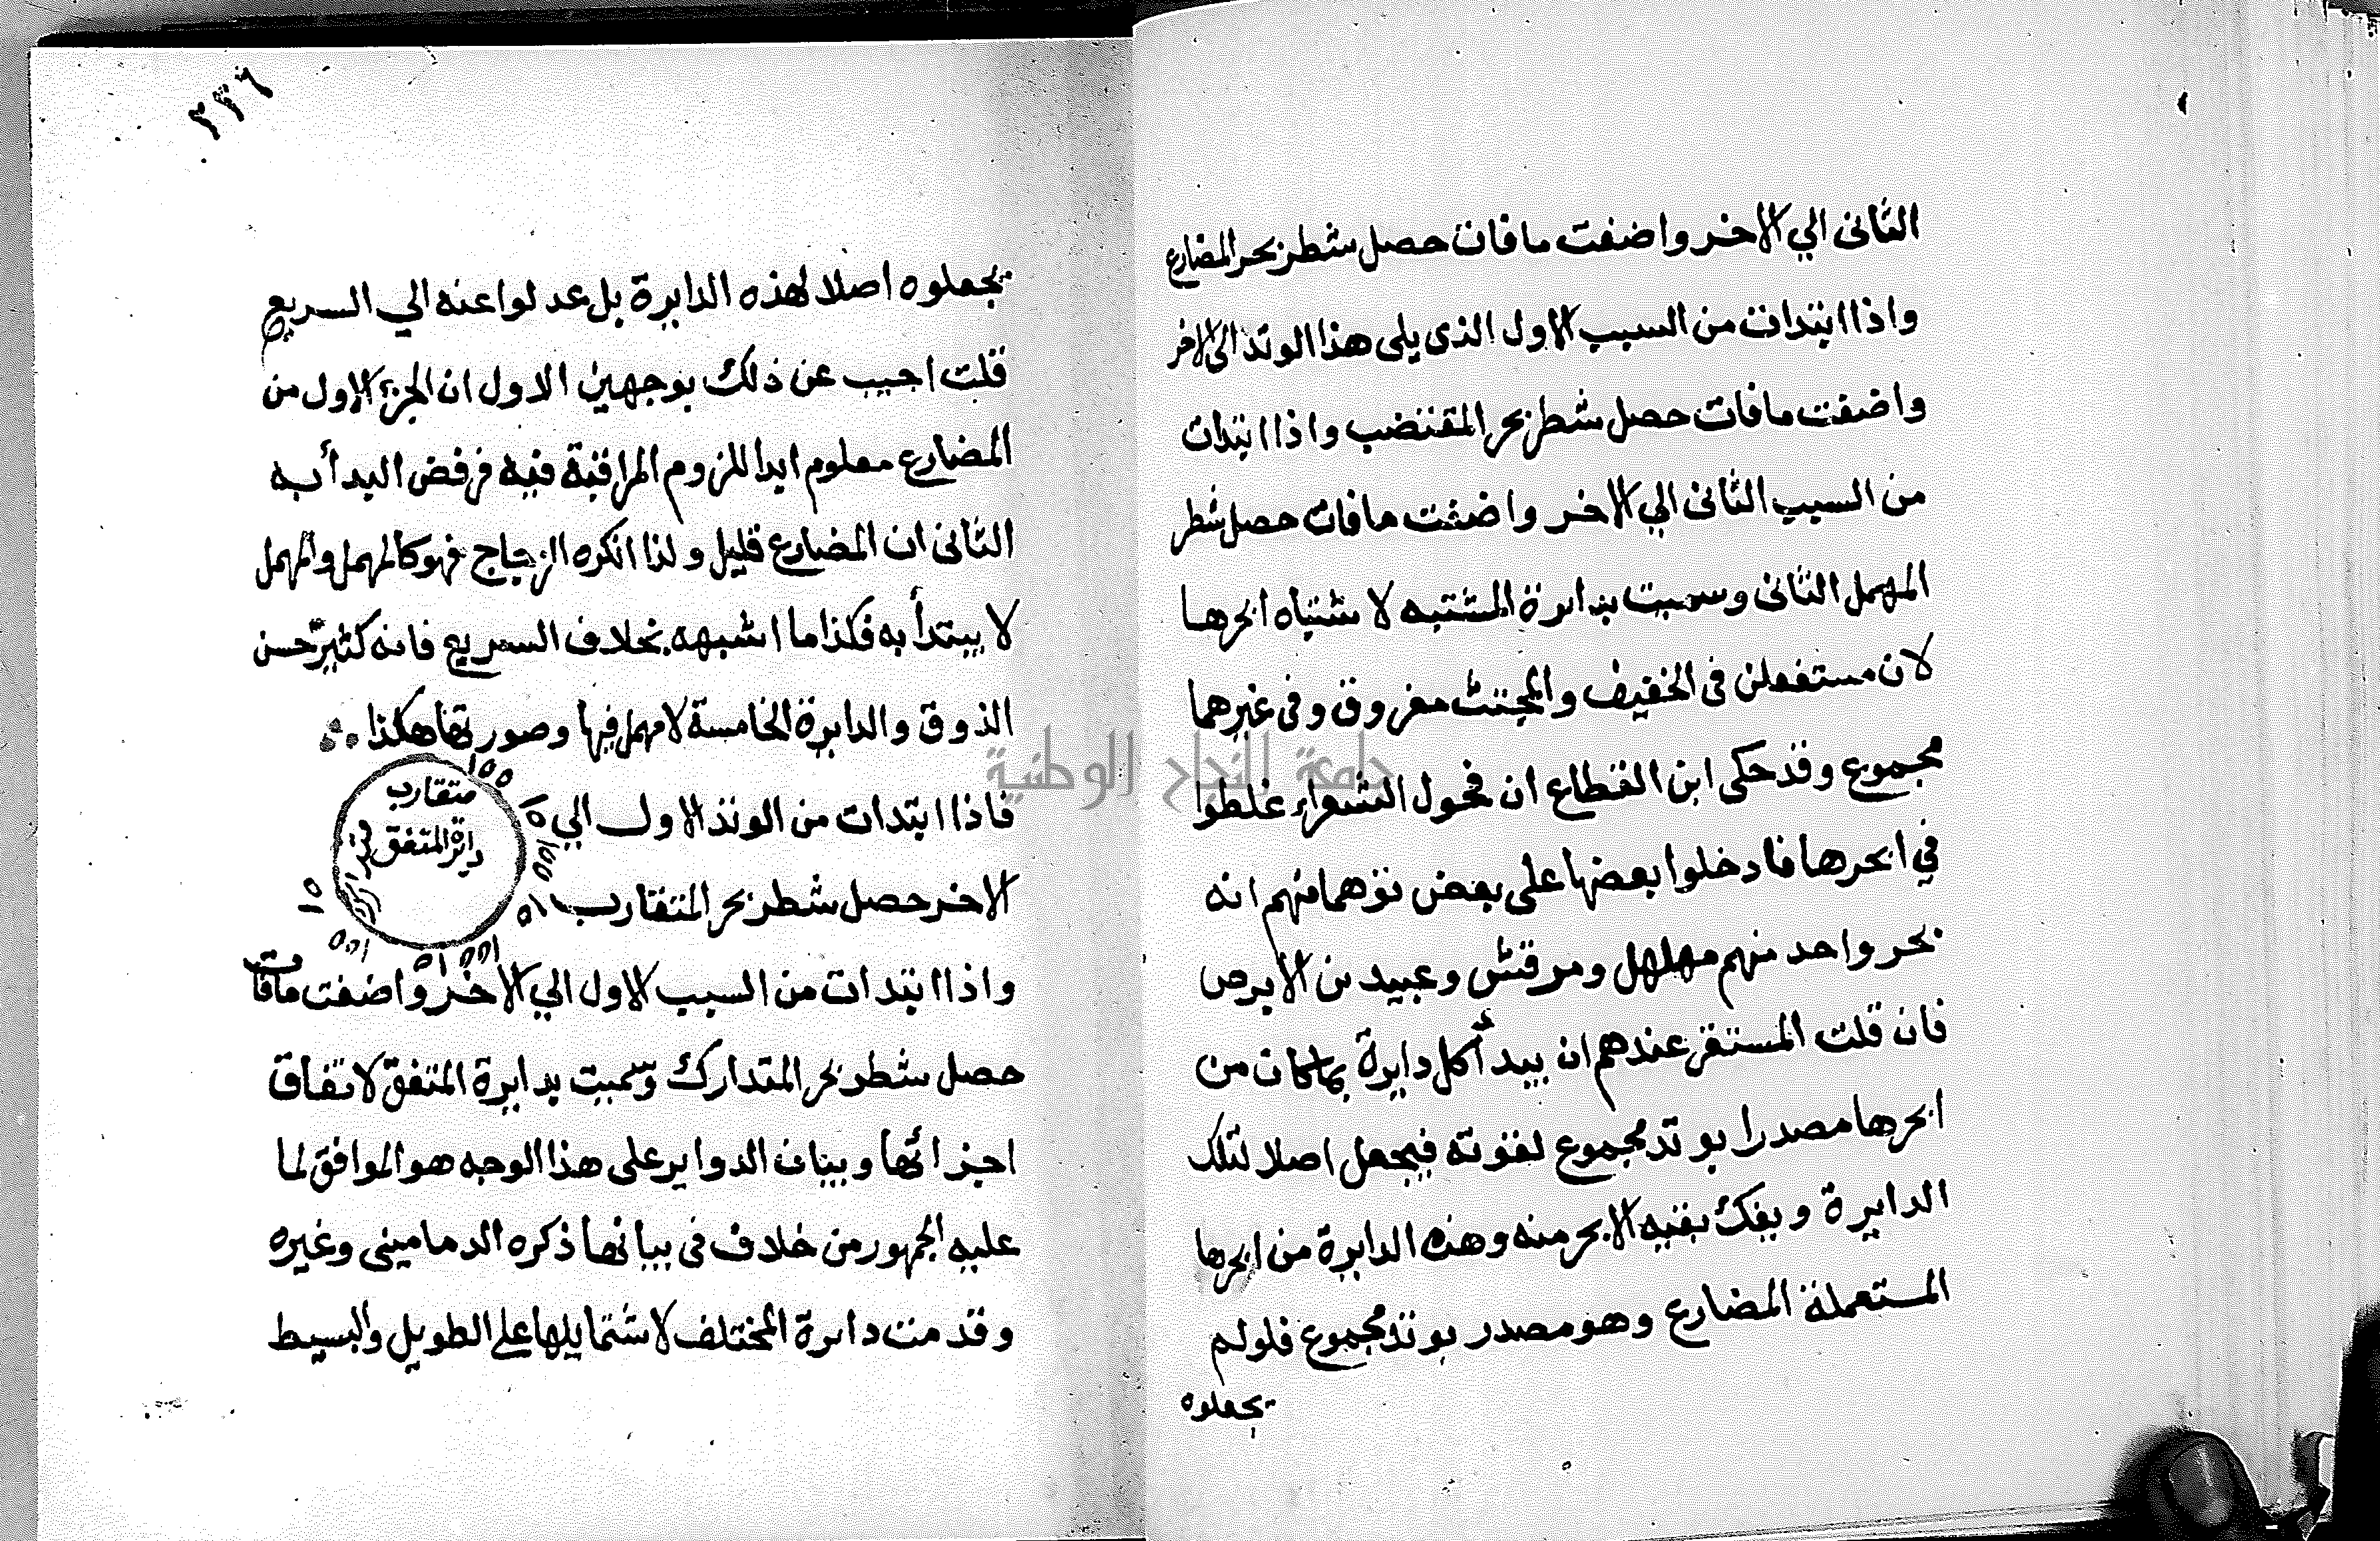 الثانى الي الاخر واضفت مافات حصل شطر بحر المضارع
واذا ابتدات من السبب الاول الذى يلى هذا الوتد الى الاخر
واضفت مافات حصل شطر بحر المقتضب واذا ابتدات
من السبب الثانى الي الاخر واضفت مافات حصل شطر
المهمل الثانى وسميت بدايرة المشتبه لاشتباه ابحرها
لان مستفعلن فى الخفيف والمجتث مفروق وفى غيرهما
مجموع وقد حكى ابن القطاع ان فحول الشعراء غلطوا
في ابحرها فادخلوا بعضها على بعض توهما منهم انه
بحر واحد منهم مهلهل ومرقش وعبيد بن الابرص
فان قلت المستقر عندهم ان يبدأ كل دايرة بما كان من
ابحرها مصدرا بوتد مجموع لقوته فيجعل اصلا لتلك
الدايرة ويفك بقية الابحر منه وهذه الدايرة من ابحرها
المستعملة المضارع وهو مصدر بوتد مجموع فلو لم
يجعلوه
٢٣٦
يجعلوه اصلا لهذه الدايرة بل عدلوا عنه الي السريع
قلت اجيب عن ذلك بوجهين الاول ان الجزء الاول من
المضارع معلوم ابدا للزوم المراقبة فيه فرفض البدأ به
الثانى ان المضارع قليل ولذا انكره الزجاج فهو كالمهمل والمهمل
لا يبتدأ به فكذا ما اشبهه بخلاف السريع فانه كثير حسن
الذوق والدايرة الخامسة لامهمل فيها وصورتها هكذا
متقارب
دايرة المتفق
فاذا ابتدات من الوتد الاول الي
الاخر حصل شطر بحر المتقارب
واذا ابتدات من السبب الاول الي الاخر واضفت مافات
حصل شطر بحر المتدارك وسميت بدايرة المتفق لاتفاق
اجزائها وبيان الدواير على هذا الوجه هو الموافق لما
عليه الجمهور من خلاف فى بيانها ذكره الدمامينى وغيره
وقدمت دايرة المختلف لاشتمايلها على الطويل والبسيط
جامعة النجاح الوطنية